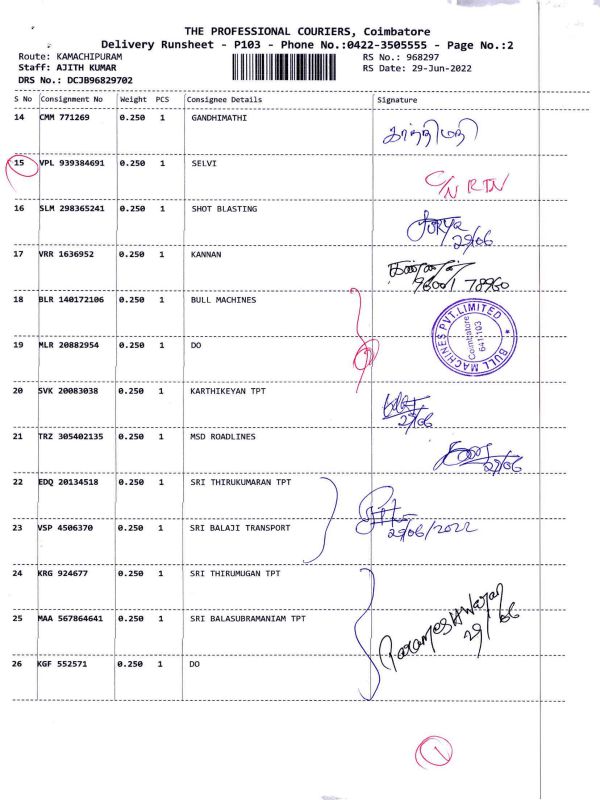 THE PROFESSIONAL COURIERS, Coimbatore
Delivery Runsheet - P103 - Phone No.:0422-3505555 - Page No.:2
Route: KAMACHIPURAM RS No.: 968297
Staff: AJITH KUMAR RS Date: 29-Jun-2022
DRS No.: DCJB96829702
S No Consignment No Weight PCS Consignee Details Signature
14 CMM 771269 0.250 1 GANDHIMATHI
காந்திமதி
15 VPL 939384691 0.250 1 SELVI
C/N RTN
16 SLM 298365241 0.250 1 SHOT BLASTING
SURYA
29/06
17 VRR 1636952 0.250 1 KANNAN
கண்ணன்
96001 78960
18 BLR 140172106 0.250 1 BULL MACHINES
BULL MACHINES PVT.LIMITED
Coimbatore
641 103
19 MLR 20882954 0.250 1 DO
20 SVK 20083038 0.250 1 KARTHIKEYAN TPT
29/06
21 TRZ 305402135 0.250 1 MSD ROADLINES
29/06
22 EDQ 20134518 0.250 1 SRI THIRUKUMARAN TPT
23 VSP 4506370 0.250 1 SRI BALAJI TRANSPORT
29/06/2022
24 KRG 924677 0.250 1 SRI THIRUMUGAN TPT
25 MAA 567864641 0.250 1 SRI BALASUBRAMANIAM TPT
Parameshwaran
29/06
26 KGF 552571 0.250 1 DO
1